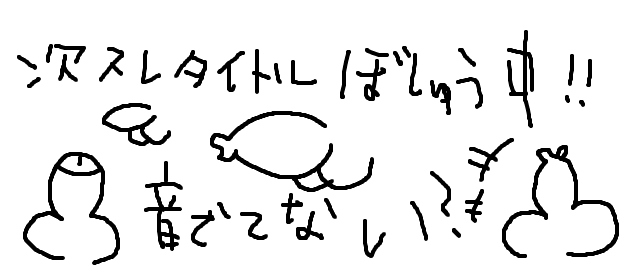 次スレタイトルぼしゅう中!!
音でてなしい?